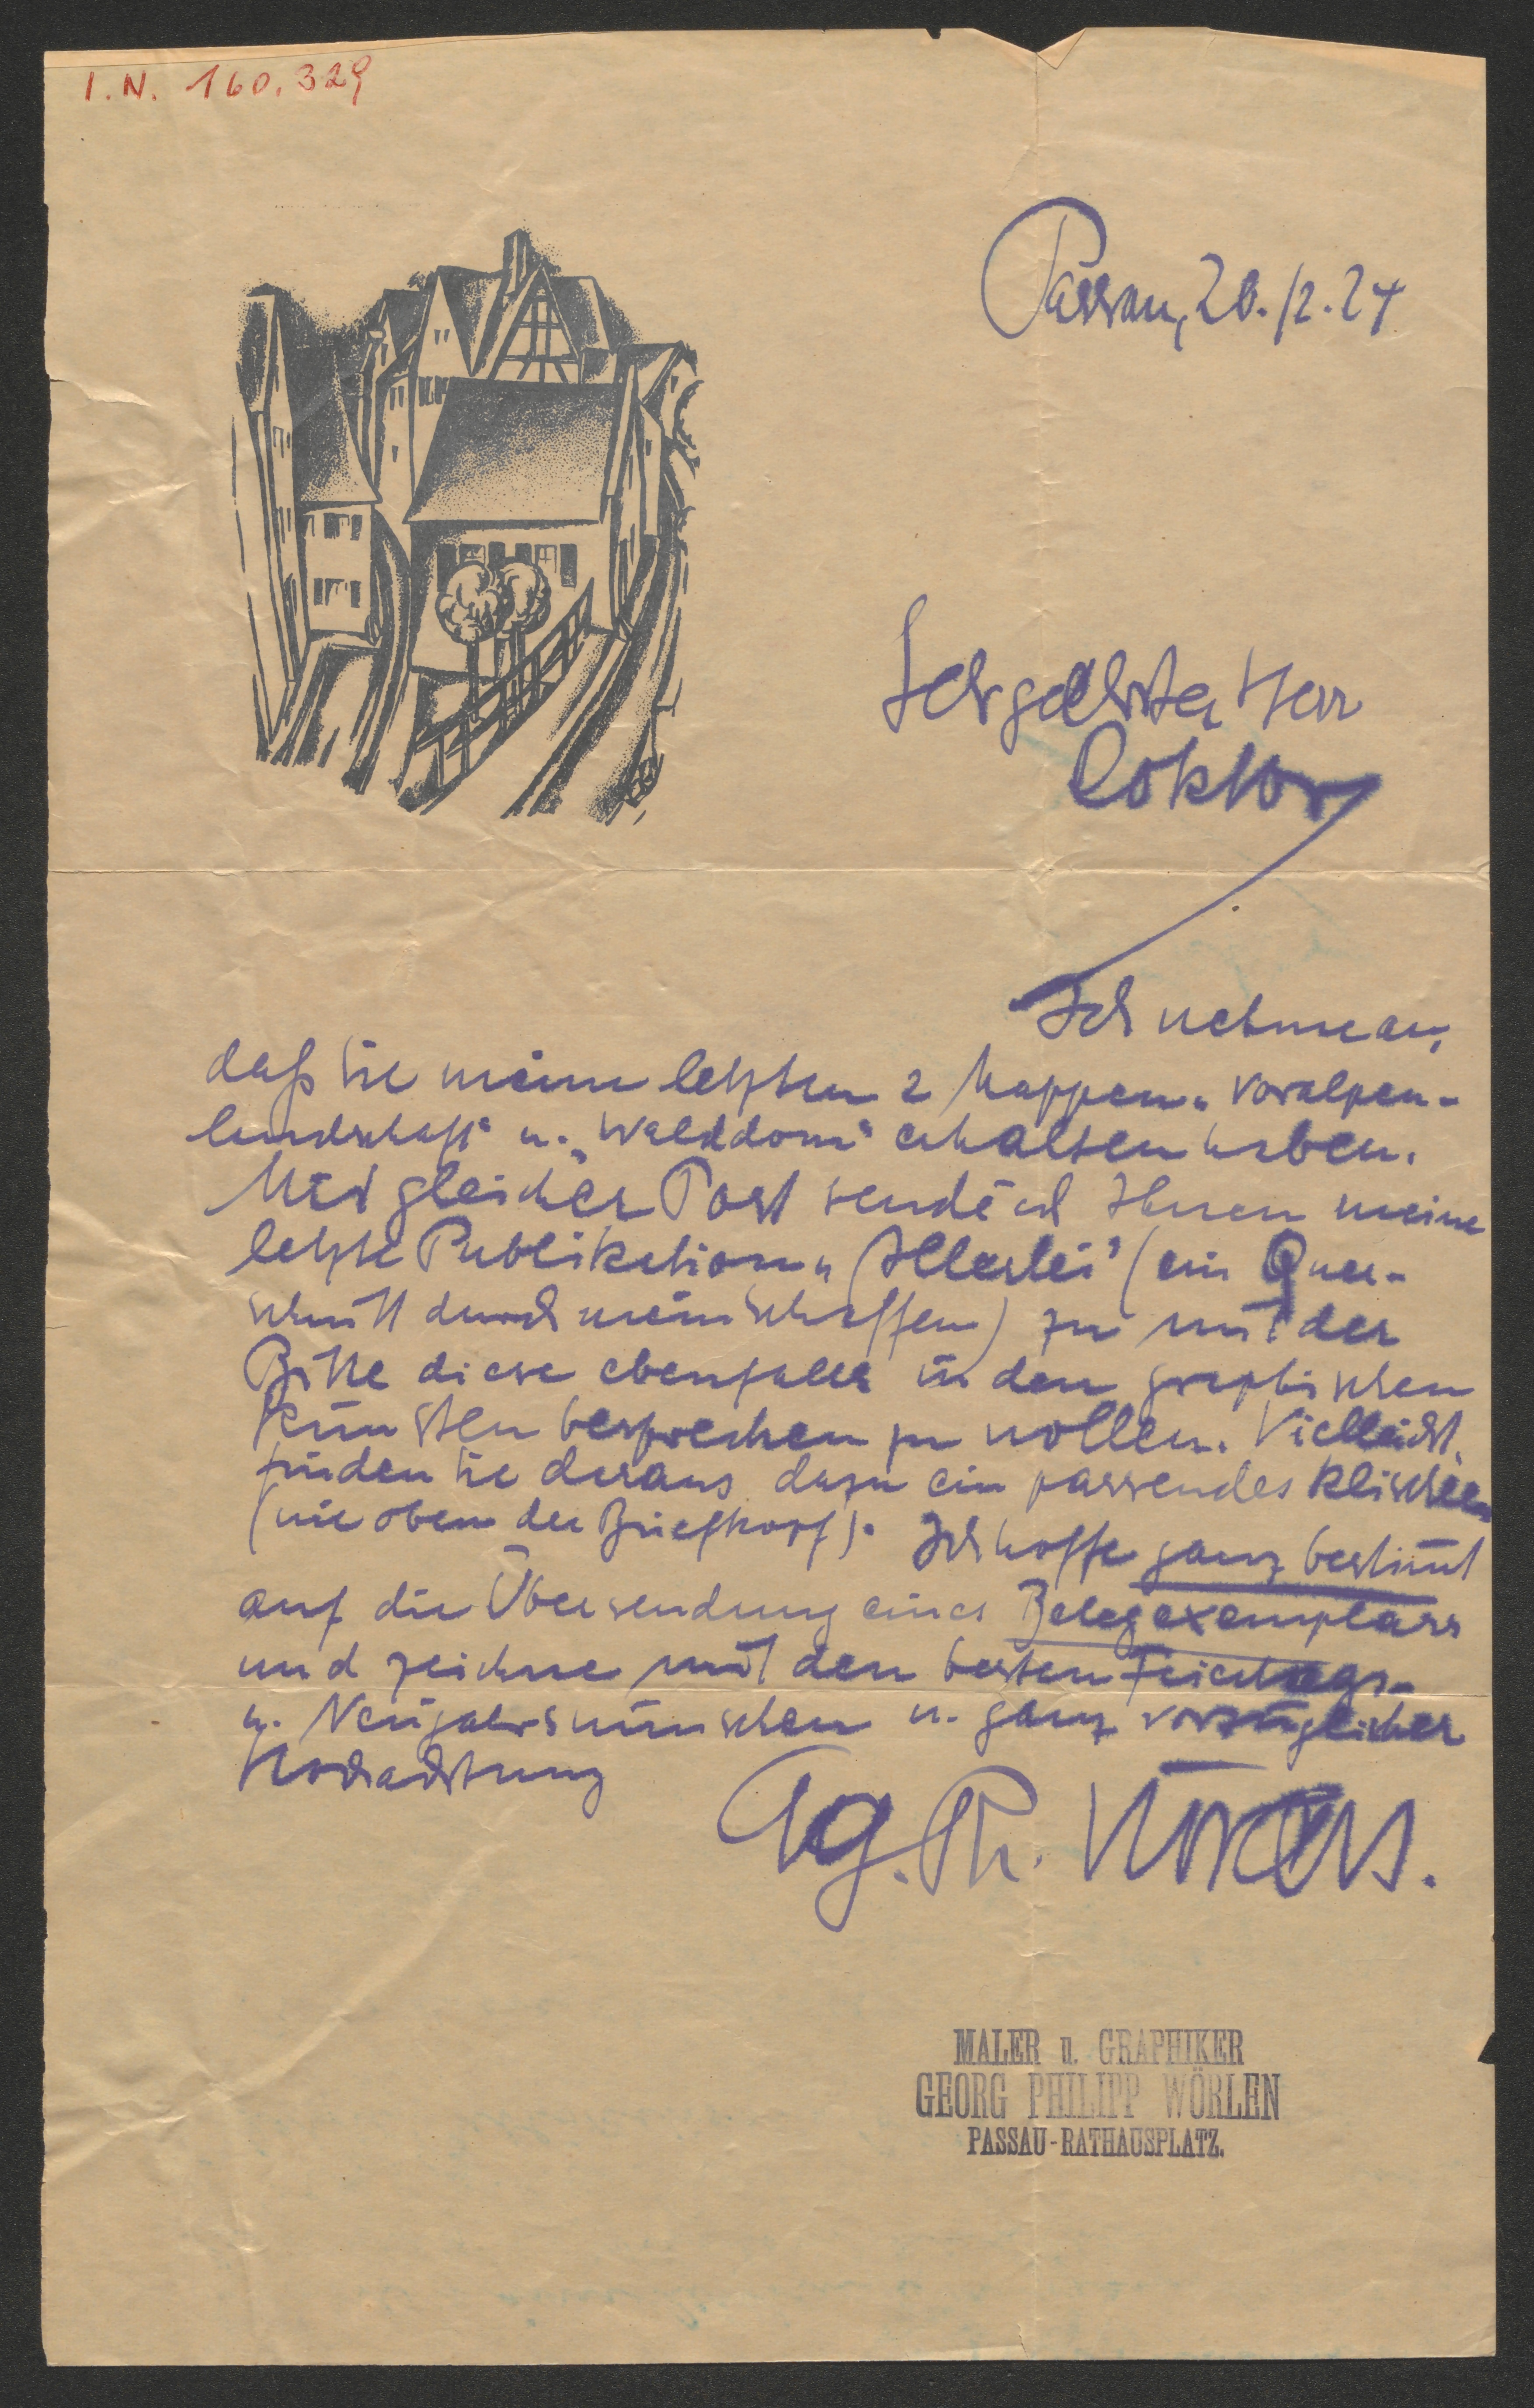 I.N. 160.329
Passau, 20.12.24
Sehrgeehrter Herr
Doktor
Ich nehme an,
daß Sie meine letzten 2 Mappen „Voralpen-
landschaft“ u. „Walddom“ erhalten haben.
Mit gleicher Post sende ich Ihnen meine
letzte Publikation „Allerlei“ (ein Quer-
schnitt durch mein Schaffen) zu mit der
Bitte diese ebenfalls in den graphischen
Künsten besprechen zu wollen. Vielleicht
finden Sie daraus dazu ein passendes Klischee
(wie oben der Briefkopf). Ich hoffe ganz bestimt
auf die Übersendung eines Belegexemplars
und zeichne mit den besten Feiertags-
u. Neujahrswünschen u. ganz vorzüglicher
Hochachtung
Gg. Ph. Wörlen.
MALER u. GRAPHIKER
GEORG PHILIPP WÖRLEN
PASSAU-RATHAUSPLATZ.